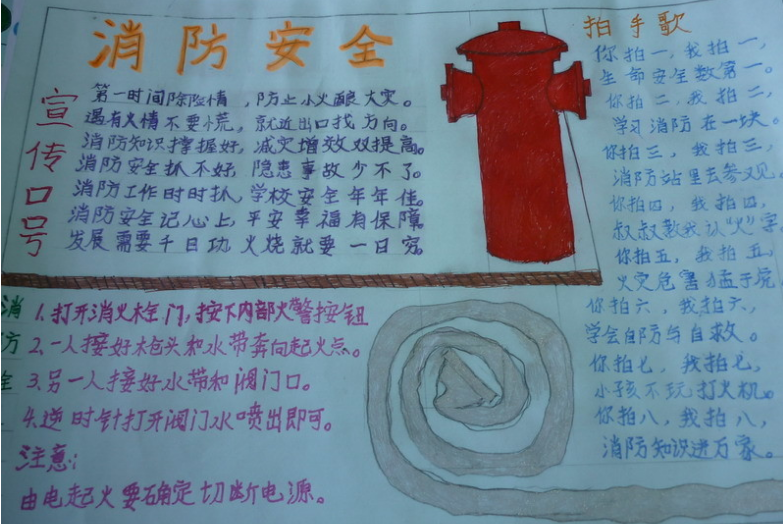 消防安全
宣传口号
第一时间除险情，防止小火酿大灾。
遇有火情不要慌，就近出口找方向。
消防知识掌握好，减灾增效双提高。
消防安全抓不好，隐患事故少不了。
消防工作时时抓，学校安全年年佳。
消防安全记心上，平安幸福有保障。
发展需要千日功，火烧就要一日穷。
拍手歌
你拍一，我拍一，
生命安全数第一。
你拍二，我拍二，
学习消防在一块。
你拍三，我拍三，
消防站里去参观
你拍四，我拍四，
叔叔教我认“火”字
你拍五，我拍五，
火灾危害猛于虎
你拍六，我拍六，
学会自防与自救。
你拍七，我拍七，
小孩不玩打火机。
你拍八，我拍八，
消防知识进万家。
消
防
全
1.打开消火栓门，按下内部火警按钮
2.一人接好枪头和水带奔向起火点。
3.另一人接好水带和阀门口。
4.逆时针打开阀门水喷出即可。
注意：
由电起火要确定切断电源。